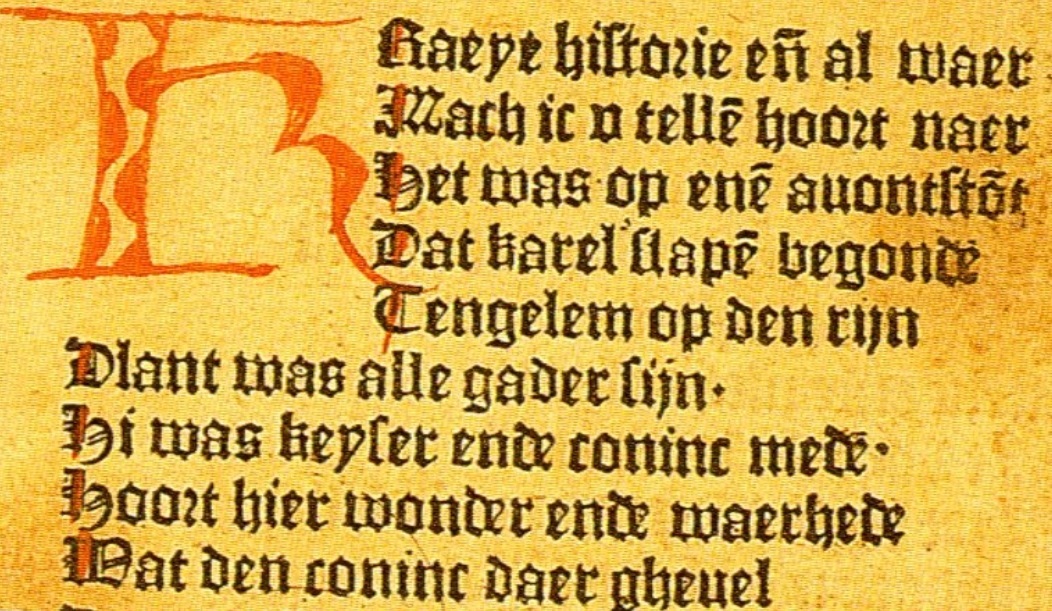 FRaeye historie en̄ al waer
Mach ic v tellē hoort naer
Het was op enē auontstōt
Dat karel slapē begonde
Tengelem op den rijn
Dlant was alle gader sijn.
Hi was keyser ende coninc mede.
Hoort hier wonder ende waerhede
Wat den coninc daer gheuel